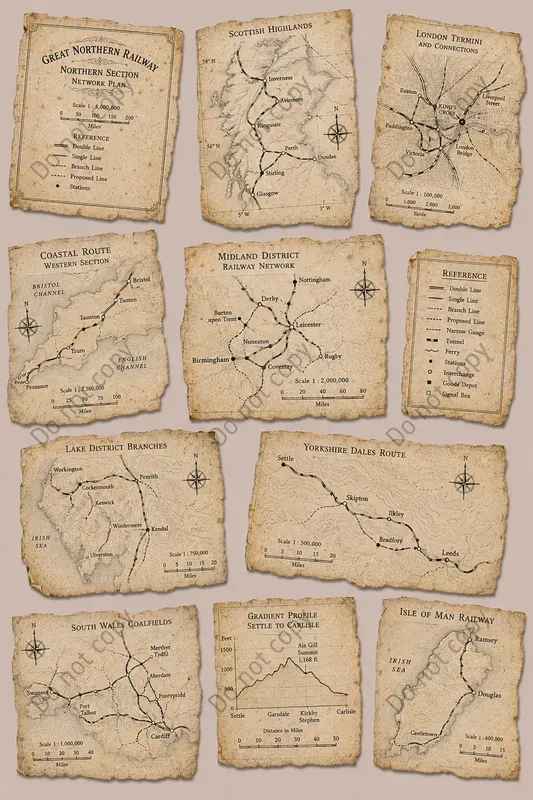 GREAT NORTHERN RAILWAY
NORTHERN SECTION
NETWORK PLAN
Scale 1 : 8,000,000
0 50 100 150 200
Miles
REFERENCE
Double Line
Single Line
Branch Line
Proposed Line
Stations
SCOTTISH HIGHLANDS
58° N
Inverness
Aviemore
Kingussie
56° N
Perth
Dundee
Stirling
Glasgow
5° W
3° W
LONDON TERMINI
AND CONNECTIONS
Euston
KING'S
CROSS
Liverpool
Street
Paddington
Victoria
London
Bridge
Scale 1 : 100,000
0 1,000 2,000 3,000
Yards
COASTAL ROUTE
WESTERN SECTION
BRISTOL
CHANNEL
Bristol
Taunton
Truro
ENGLISH
CHANNEL
Penzance
0 25 50 75 100
Miles
MIDLAND DISTRICT
RAILWAY NETWORK
Nottingham
Derby
Burton
upon Trent
Leicester
Nuneaton
Birmingham
Rugby
Coventry
Scale 1 : 2,000,000
0 20 40 60 80
Miles
REFERENCE
Double Line
Single Line
Branch Line
Proposed Line
Narrow Gauge
Tunnel
Ferry
Stations
Interchange
Goods Depot
Signal Box
LAKE DISTRICT BRANCHES
Workington
Penrith
Cockermouth
Keswick
Windermere
Kendal
IRISH
SEA
Ulverston
Scale 1 : 750,000
0 5 10 15 20
Miles
YORKSHIRE DALES ROUTE
Settle
Skipton
Ilkley
Bradford
Leeds
Scale 1 : 500,000
0 5 10 15 20
Miles
SOUTH WALES COALFIELDS
Merthyr
Tydfil
Aberdare
Swansea
Pontypridd
Port
Talbot
Cardiff
Scale 1 : 1,000,000
0 10 20 30 40
Miles
GRADIENT PROFILE
SETTLE TO CARLISLE
Feet
1500
1000
500
0
Ais Gill
Summit
1,168 ft
Settle
Garsdale
Kirkby
Stephen
Carlisle
Distance in Miles
0 10 20 30 40 50
ISLE OF MAN RAILWAY
Ramsey
IRISH
SEA
Douglas
Castletown
Scale 1 : 600,000
0 5 10 15
Miles
Do not copy